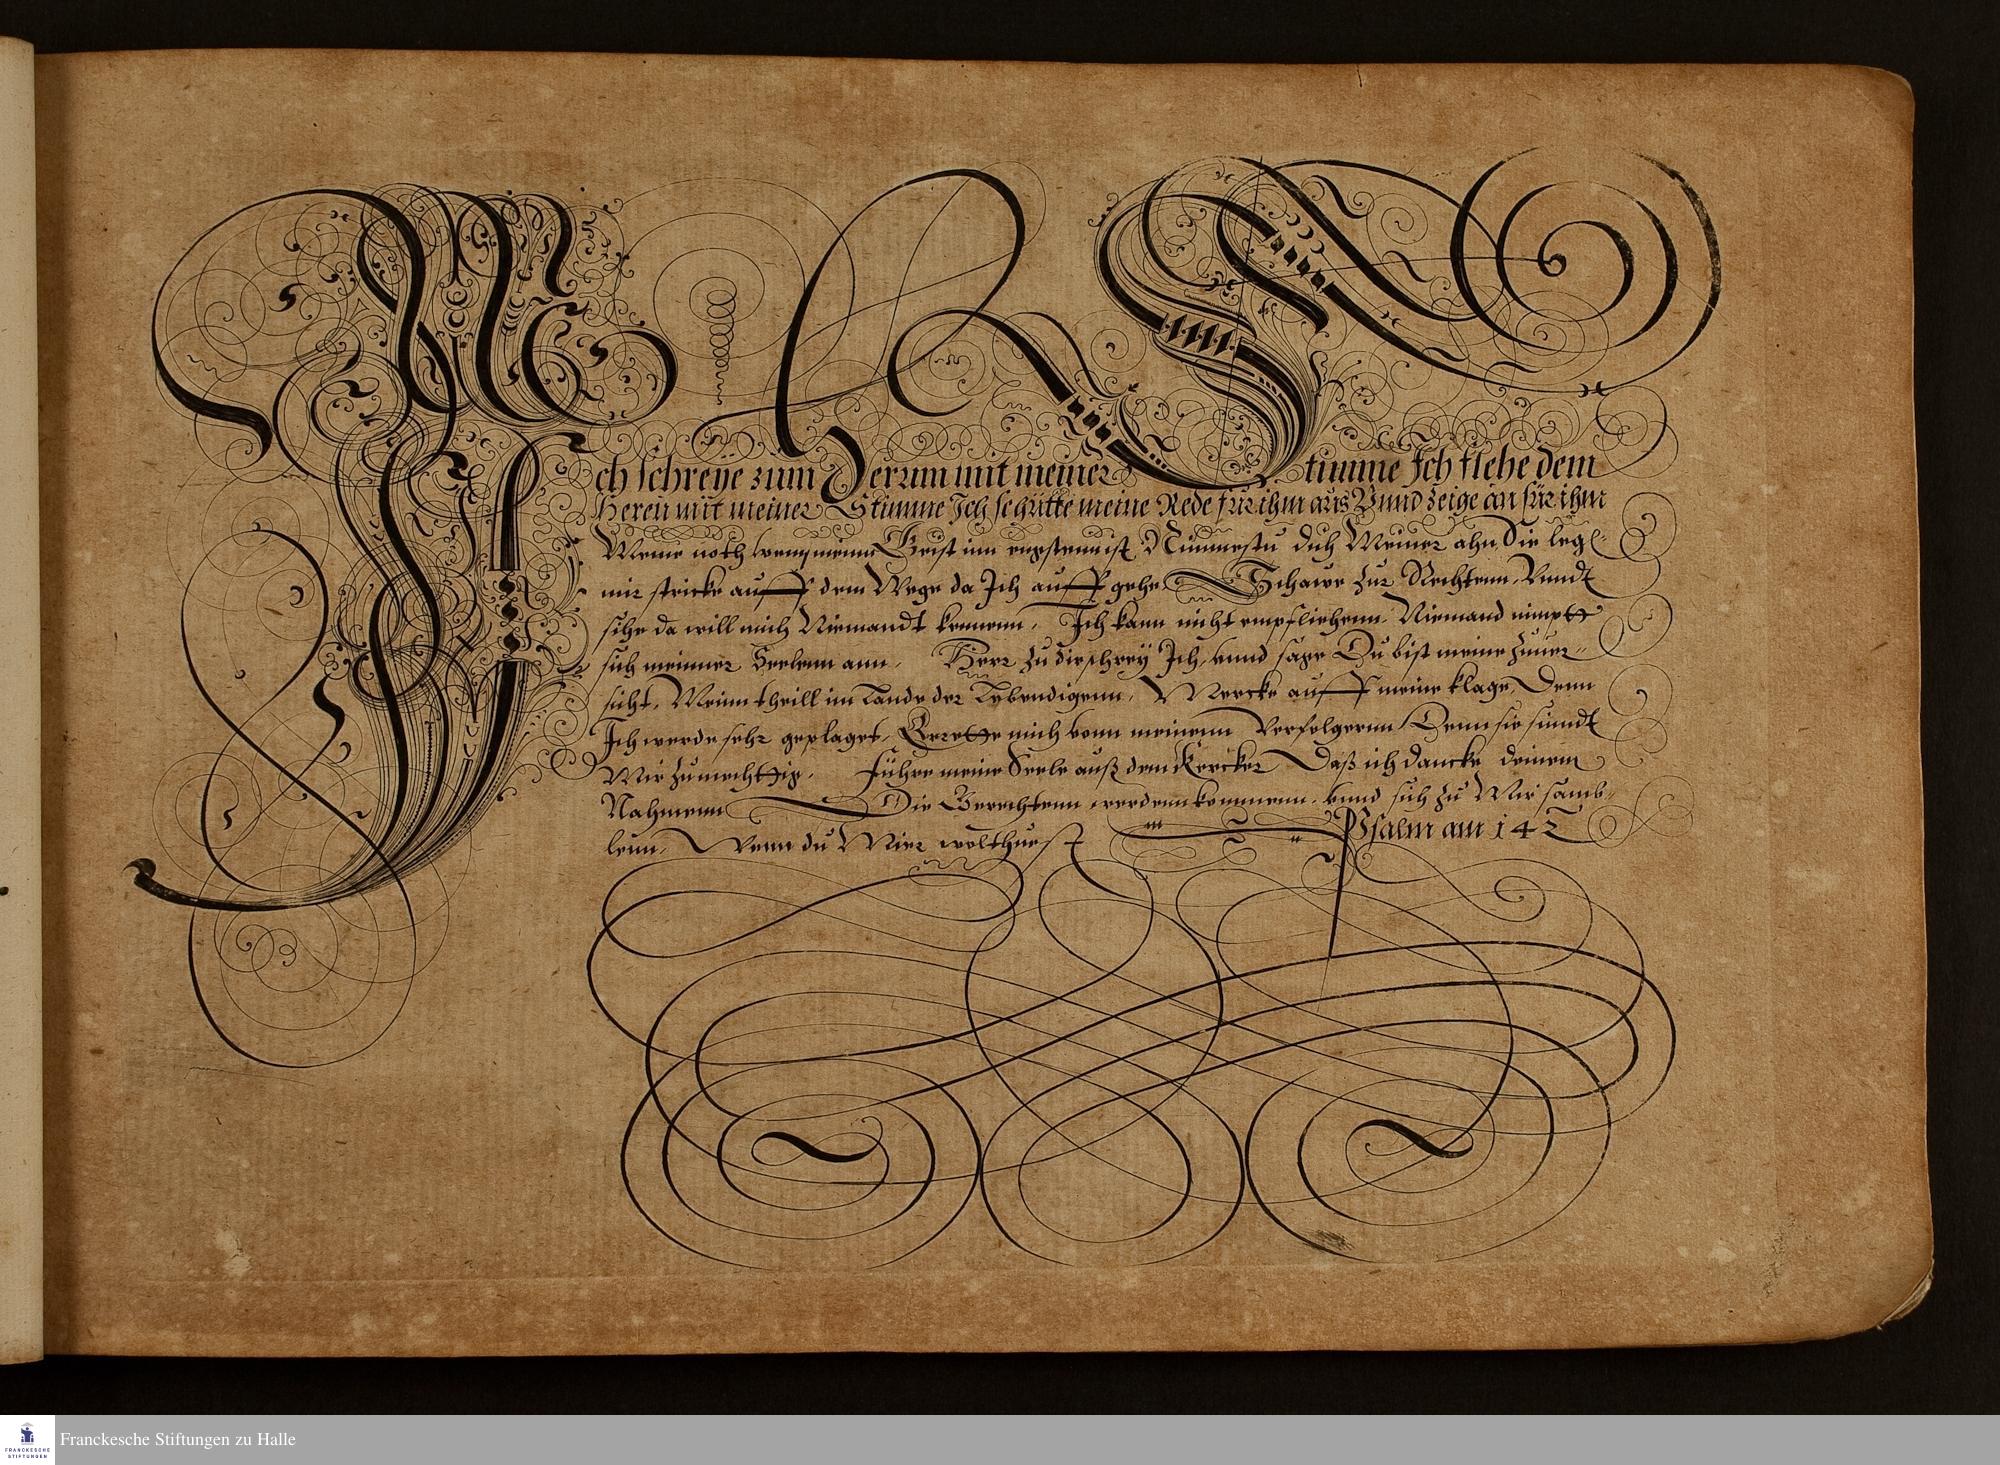 Ich schreye zum Herrnn mit meiner Stimme Ich flehe dem
Heren mit meiner Stimme Ich schütte meine Rede für ihm aus Vnnd zeige an für ihm
Meine noth wenn meinn Geist inn engstenn ist, Nimmestu dich Meiner ahn, Sie leg[en]
mir stricke auff dem Wege da Ich auff gehe Schawe zur Rechtenn, Vnndt
sihe da will mich Niemandt kennenn, Ich kann nicht empfliehenn Niemand nimptt
sich meinner Seelenn ann, Herr zu dir schrey Ich, vnnd sage Du bist meine zuuer-
sicht, Meinn theill im Lande der Lebendigenn, Mercke auff meine klage, Denn
Ich werde sehr geplaget, Errette mich vonn meinenn Verfolgerenn Denn sie sinndt
Mir zu mechttig, Führe meine Seele auß dem Kercker Daß ich dancke deinem
Nahmenn Die Gerechtenn werdenn kommenn, vnnd sich zu Mir samb-
lenn, Wenn du Mier wolthuest
Psalm am 142
Franckesche Stiftungen zu Halle
FRANCKESCHE
STIFTUNGEN